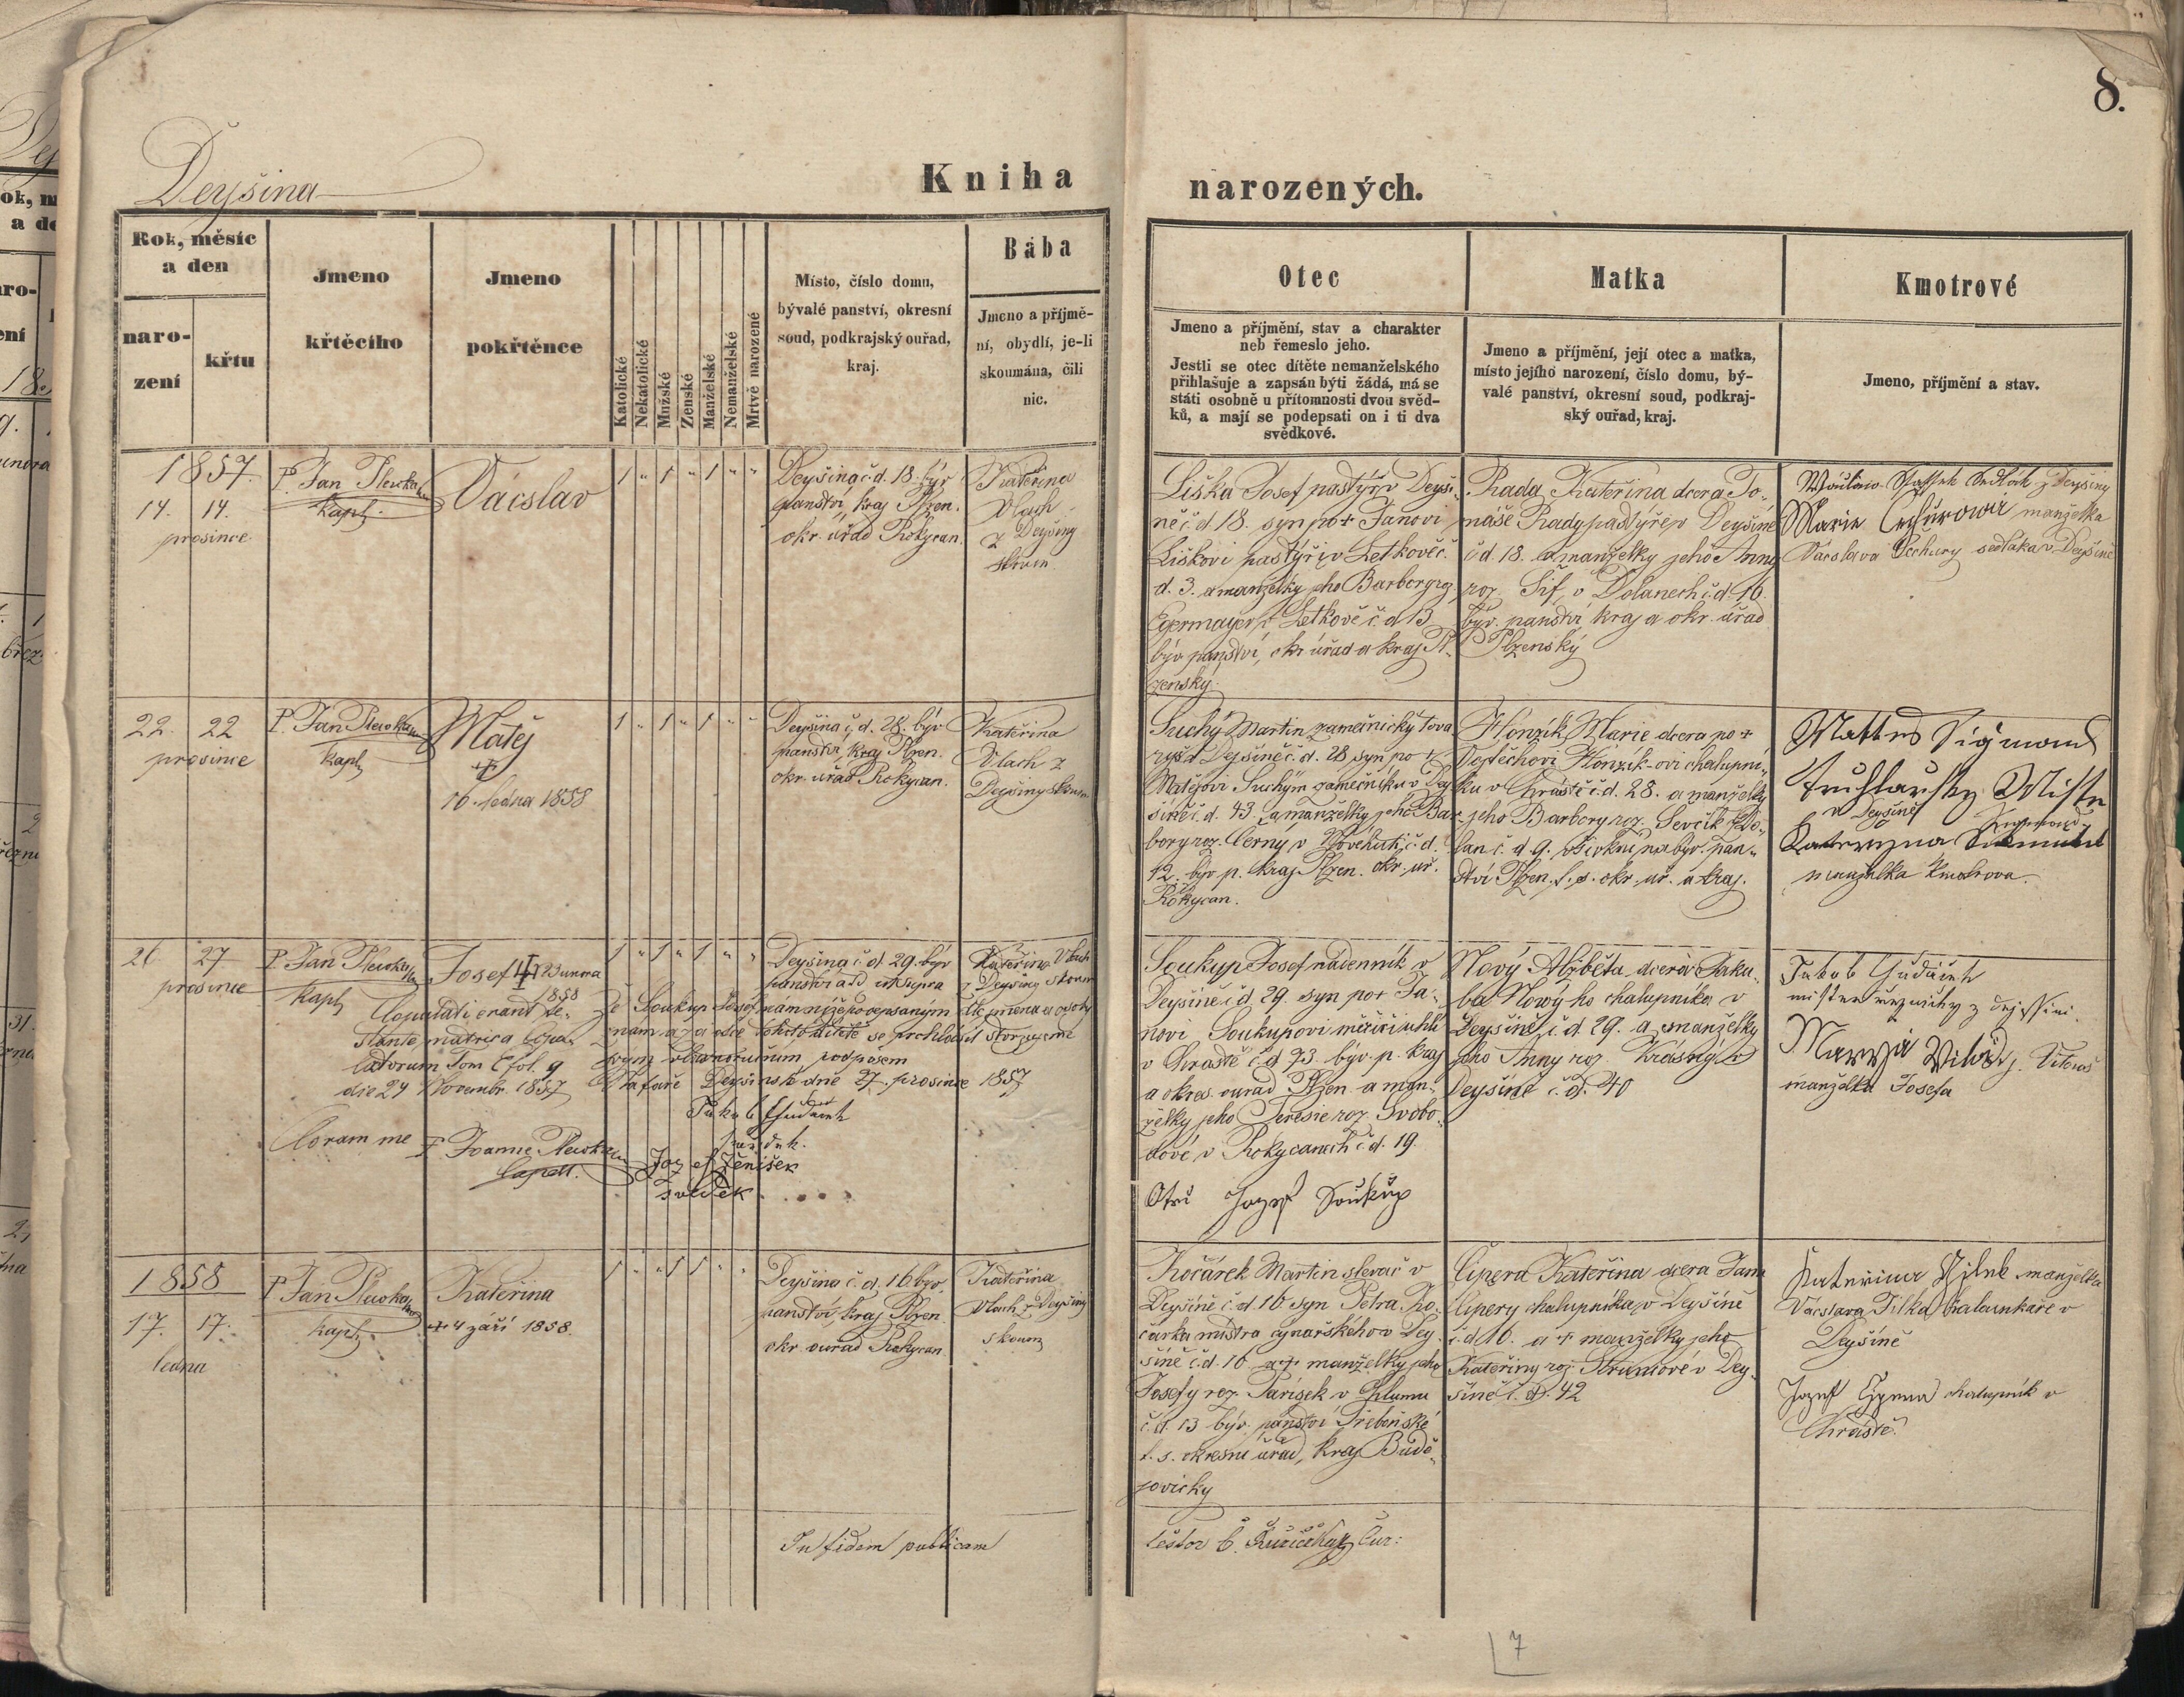 8.
Deyšina
Kniha narozených.
Rok, měsíc
a den
naro-
zení
křtu
Jmeno
křtěcího
Jmeno
pokřtěnce
Katolické
Nekatolické
Mužské
Ženské
Manželské
Nemanželské
Mrtvě narozené
Místo, číslo domu,
bývalé panství, okresní
soud, podkrajský ouřad,
kraj.
Bába
Jmeno a příjmě-
ní, obydlí, je-li
skoumána, čili
nic.
Otec
Jmeno a příjmění, stav a charakter
neb řemeslo jeho.
Jestli se otec dítěte nemanželského
přihlašuje a zapsán býti žádá, má se
státi osobně u přítomnosti dvou svěd-
ků, a mají se podepsati on i ti dva
svědkové.
Matka
Jmeno a příjmění, její otec a matka,
místo jejího narození, číslo domu, bý-
valé panství, okresní soud, podkraj-
ský ouřad, kraj.
Kmotrové
Jmeno, příjmění a stav.
1857.
14. 14.
prosince
P. Jan
kapl.
Václav
1 " 1 " 1 " "
Deyšina č.d. 18. býv
panství, kraj Plzen.
okr. úřad Rokycan.
Kateřina
Vlach
z Deyšiny
skoum.
Liška Josef pastýř v Deyši-
ně č.d. 18. syn po + Janovi
Liškovi pastýři v Letkově č.
d. 3. a manželky jeho Barbory roz.
Egermayer v Letkově č.d. 13
býv panství, okr úřad a kraj Pl-
zenský.
Rada Kateřina dcera To-
máše Rady pastýře v Deyšině
č.d. 18. a manželky jeho Anny
roz. Šif, v Dolanech č.d. 16.
býv. panství kraj a okr. úřad
Plzenský
Sedlák z Deyšiny
Marie manželka
Václava Pechury sedláka v Deyšině
22. 22
prosince
P. Jan
kapl
Matěj
+
10. ledna 1858
1 " 1 " 1 " "
Deyšina č.d. 28. býv
panství, kraj Plzen.
okr. úřad Rokycan.
Kateřina
Vlach z
Deyšiny skoum.
Suchý Martin zamečnický tova
ryš v Deyšině č.d. 28 syn po +
Matějovi Suchým zamečníku v Dey
šině č.d. 43. a manželky jeho Bar-
bory roz. Černý v Nové huti č.d.
12. býv p. kraj Plzen. okr. uř.
Rokycan.
Honzík Marie dcera po +
Vojtěchovi Honzík-ovi chalupní-
ku v Chrástě č.d. 28. a manželky
jeho Barbory roz. Ševčík z Do-
lan č.d. 9. býv. pan-
ství Plzen. t.s. okr. uř. a kraj.
Mattes Sigmond
Truhlařsky Mistr
v Deyšině
Katerzyna
manzelka
26 27
prosince
P. Jan
kapl
Josef + 23 února
1858
Copulati erant te-
stante matrica Copu-
latorum Tom E fol. 9
die 24 Novembr. 1857
Coram me P. Joanne
Capell.
1 " 1 " 1 " "
Deyšina č.d. 29. býv
panství atd ut supra
Kateřina Vlach
z Deyšiny skoum
že Soukup Josef nám níže podepsaným dle jmena a osoby
znám a za otce tohoto dítěte se prohlásil stvrzujeme
svým vlastnoručním podpisem
Na faře Deyšinské dne 27. prosince 1857
Jakub
Jozef Ženíšek
svědek
Soukup Josef nádenník v
Deyšině č.d. 29. syn po + Ja-
novi Soukupovi měřiči uhlí
v Chrástě č.d. 73. býv. p. kraj
a okres. ouřad Plzen a man-
želky jeho Teresie roz. Svobo-
dové v Rokycanech č.d. 19.
Jozef Soukup
Nový Alžběta, dcera Jaku-
ba Nowýho chalupníka v
Deyšině, č.d. 29. a manželky
jeho Anny roz. Krásný v
Deyšině č.d. 40
Jakub
mister
manželka Josefa
1858
17. 17.
ledna
P. Jan
kapl.
Kateřina
+ 4 září 1858.
1 " " 1 1 " "
Deyšina č.d. 16 býv.
panství, kraj Plzen
okr. ouřad Rokycan
Kateřina
Vlach z Deyšiny
skoum
Kočárek Martin slevač v
Deyšině č.d. 16 syn Petra Ko-
čárka mistra cynařského v Dey-
šině č.d. 16 a + manželky jeho
Josefy roz. Pařísek v Chlumu
č.d. 13 býv. panství Třeboňské
t.s. okresní úřad, kraj Budě-
jovický
Čipera Kateřina dcera Jana
Čipery chalupníka v Deyšině
č.d. 16. a + manželky jeho
Kateřiny roz. v Dey-
šině č.d. 42
Kateřina manželka
Václava Jílka v
Deyšině
Jozef Čipera chalupník v
Chrástě.
In fidem publicam
7